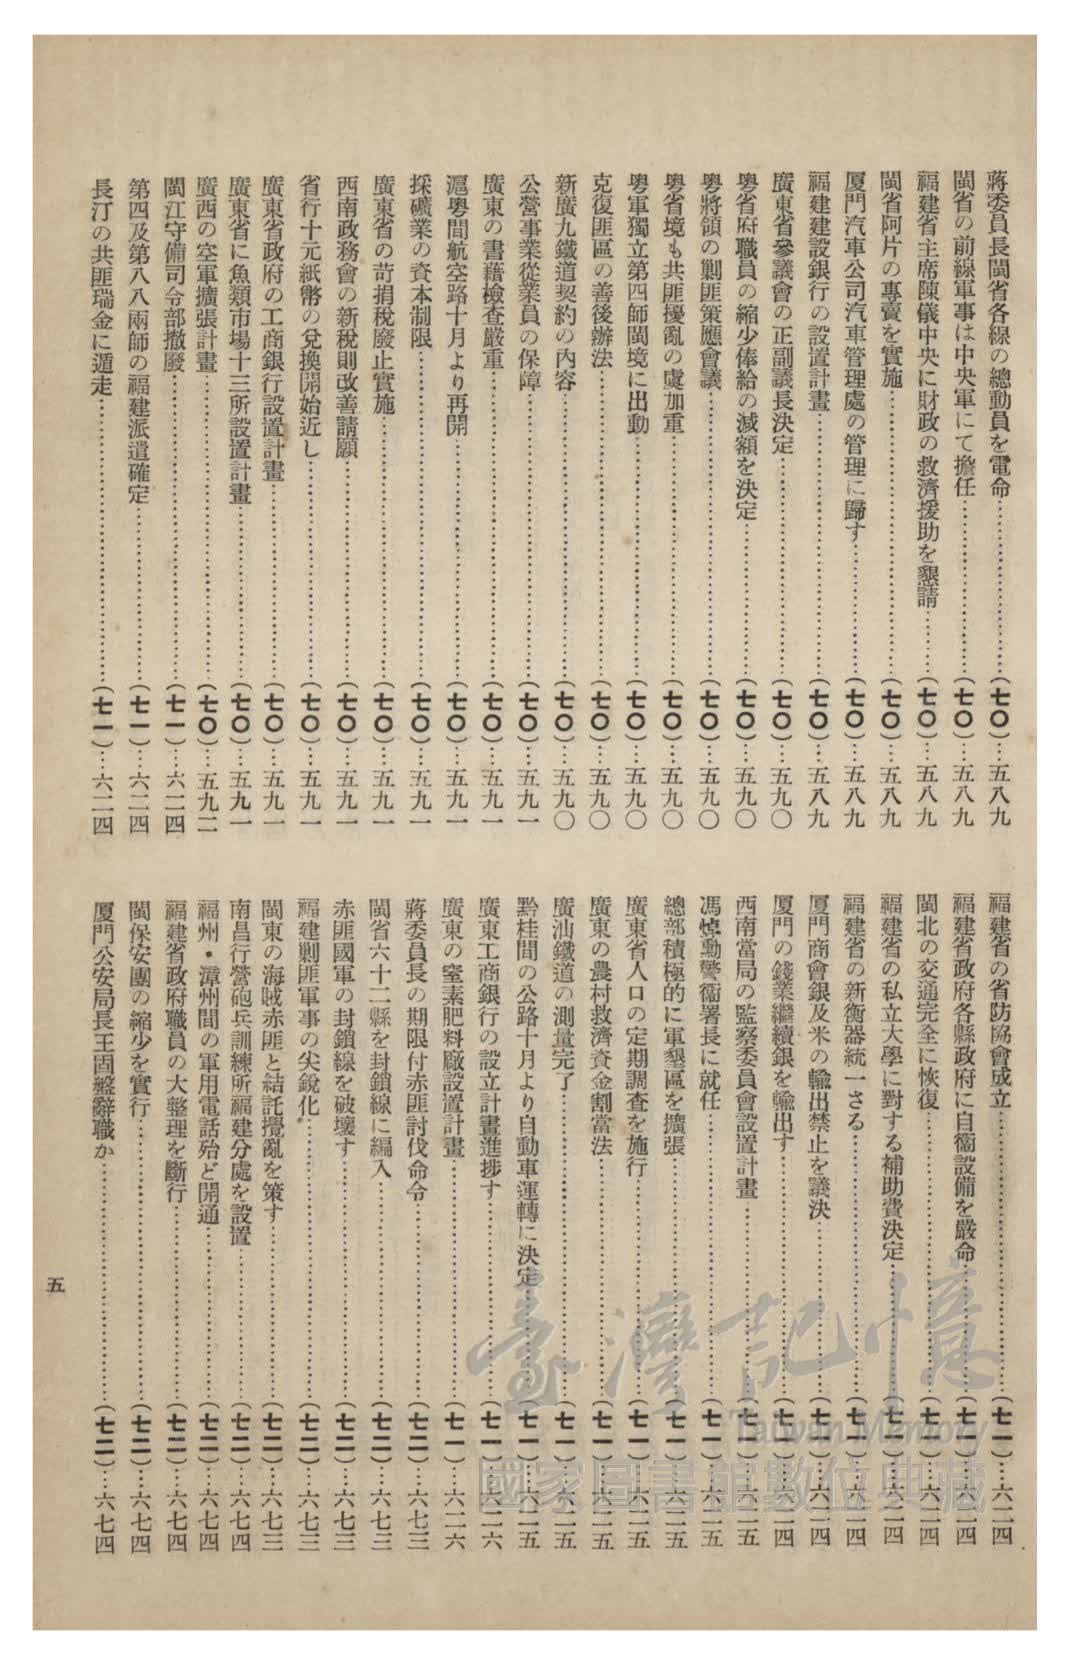 蔣委員長閩省各線の總動員を電命…………(七〇)…五八九
閩省の前線軍事は中央軍にて擔任…………(七〇)…五八九
福建省主席陳儀中央に財政の救濟援助を懇請……(七〇)…五八九
閩省阿片の專賣を實施…………(七〇)…五八九
厦門汽車公司汽車管理處の管理に歸す…………(七〇)…五八九
福建建設銀行の設置計畫…………(七〇)…五八九
廣東省參議會の正副議長決定…………(七〇)…五九〇
粤省府職員の縮少俸給の減額を決定…………(七〇)…五九〇
粤將領の剿匪策應會議…………(七〇)…五九〇
粤省境も共匪擾亂の虞加重…………(七〇)…五九〇
粤軍獨立第四師閩境に出動…………(七〇)…五九〇
克復匪區の善後辦法…………(七〇)…五九〇
新廣九鐵道契約の内容…………(七〇)…五九〇
公營事業從業員の保障…………(七〇)…五九一
廣東の書藉檢查嚴重…………(七〇)…五九一
滬粤間航空路十月より再開…………(七〇)…五九一
採礦業の資本制限…………(七〇)…五九一
廣東省の苛捐稅廢止實施…………(七〇)…五九一
西南政務會の新稅則改善請願…………(七〇)…五九一
省行十元紙幣の兌換開始近し…………(七〇)…五九一
廣東省政府の工商銀行設置計畫…………(七〇)…五九一
廣東省に魚類市場十三所設置計畫…………(七〇)…五九一
廣西の空軍擴張計畫…………(七〇)…五九二
閩江守備司令部撤廢…………(七一)…六二四
第四及第八八兩師の福建派遣確定…………(七一)…六二四
長汀の共匪瑞金に遁走…………(七一)…六二四
福建省の省防協會成立…………(七一)…六二四
福建省政府各縣政府に自衞設備を嚴命…………(七一)…六二四
閩北の交通完全に恢復…………(七一)…六二四
福建省の私立大學に對する補助費決定…………(七一)…六二四
福建省の新衡器統一さる…………(七一)…六二四
厦門商會銀及米の輸出禁止を議決…………(七一)…六二四
厦門の錢業繼續銀を輸出す…………(七一)…六二四
西南當局の監察委員會設置計畫…………(七一)…六二五
馮焯勳警衞署長に就任…………(七一)…六二五
總部積極的に軍墾區を擴張…………(七一)…六二五
廣東省人口の定期調查を施行…………(七一)…六二五
廣東の農村救濟資金割當法…………(七一)…六二五
廣汕鐵道の測量完了…………(七一)…六二五
黔桂間の公路十月より自動車運轉に決定…………(七一)…六二五
廣東工商銀行の設立計畫進捗す…………(七一)…六二六
廣東の窒素肥料廠設置計畫…………(七一)…六二六
蔣委員長の期限付赤匪討伐命令…………(七二)…六七三
閩省六十二縣を封鎖線に編入…………(七二)…六七三
赤匪國軍の封鎖線を破壞す…………(七二)…六七三
福建剿匪軍事の尖銳化…………(七二)…六七三
閩東の海賊赤匪と結託攪亂を策す…………(七二)…六七三
南昌行營砲兵訓練所福建分處を設置…………(七二)…六七四
福州・漳州間の軍用電話殆ど開通…………(七二)…六七四
福建省政府職員の大整理を斷行…………(七二)…六七四
閩保安團の縮少を實行…………(七二)…六七四
厦門公安局長王固盤辭職か…………(七二)…六七四
五
臺灣記憶
Taiwan Memory
國家圖書館數位典藏